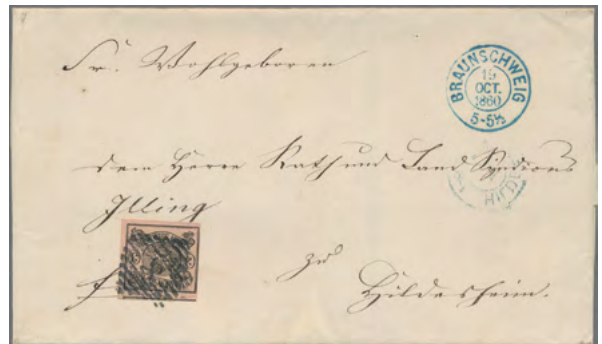 Sr. Wohlgeboren
BRAUNSCHWEIG
19
OCT.
1860
5-5½
dem Herrn Rath und Land Syndicus
Illing
zu
Hildesheim.